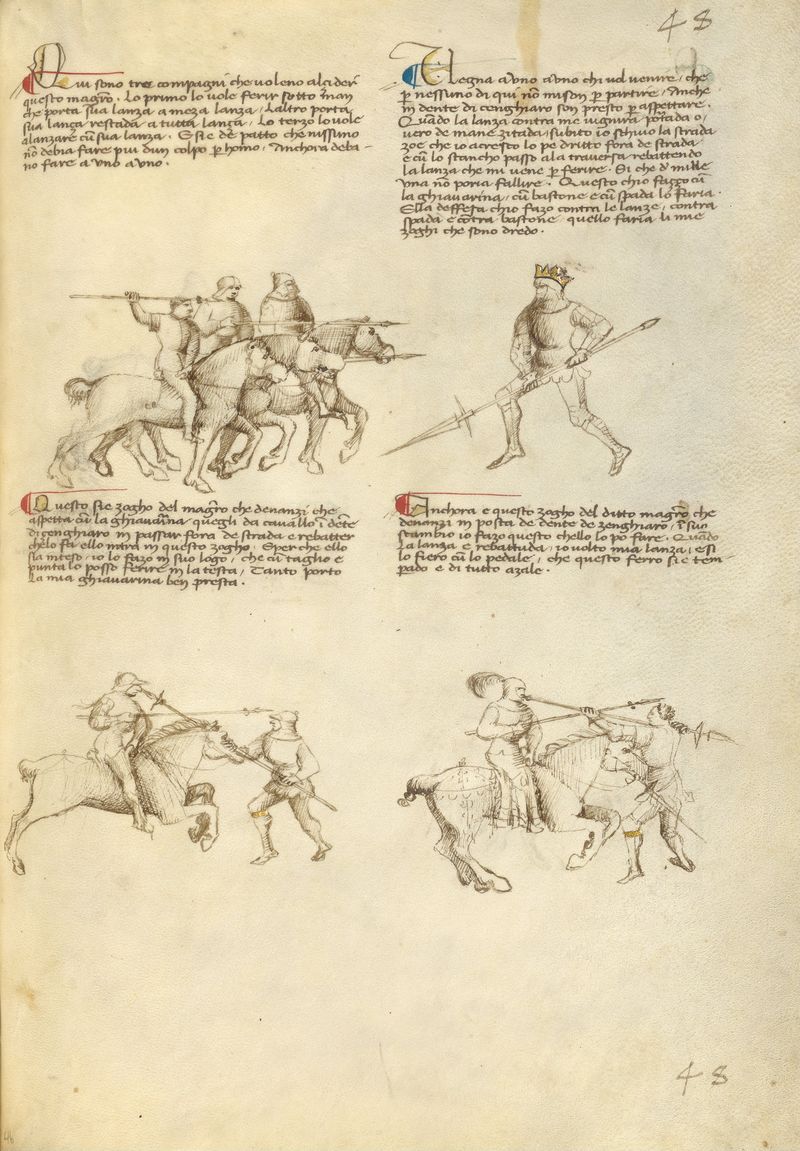 48
Qui sono tre compagni che voleno alcider
questo magro. Lo primo lo vole ferir sotto man
che porta sua lanza a meza lanza, Laltro porta
sua lanza restada a tutta lanza, Lo terzo lo vole
alanzare cu sua lanza. E si e de patto che nissuno
no debia fare piu dun colpo per homo, Anchora deba-
no fare a uno a uno.
Vegna a uno a uno chi vol venire, che
p nessuno di qui no mison p partire, Anche
in dente di cenghiaro son presto p aspettare.
Quado la lanza contra me vignira portada o,
vero de mane zitada, subito io schivo la strada
zoe che io acresco lo pe dritto fora de strada
e cu lo stancho passo ala traversa rebattendo
la lanza che mi vene p ferire. Si che de mille
una no poria fallire. Questo chio fazzo cu
la ghiavarina, cu bastone e cu spada lo faria.
Ella deffesa chio fazo contra le lanze, contra
spada e cotra bastone quello faria li mie
zoghi che sono dredo.
Questo sie zogho del magro che denanzi che
aspetta cu la ghiavarina quegli da cavallo i dete
di cenghiaro in passar fora de strada e rebatter
chelo fa ello intra in questo zogho. E per che ello
sia inteso, io lo fazo in suo logo, che cu taglio e
punta lo posso ferire in la testa, Tanto porto
la mia ghiavarina ben presta.
Anchora e questo zogho del ditto magro che
denanzi in posta de dente de zenghiaro, i suo
scambio io fazo questo chello lo po fare. Quado
la lanza e rebattuda, io volto mia lanza, e si
lo fiero cu lo pedale, che questo ferro sie tem
perado e di tutto azale.
48
46